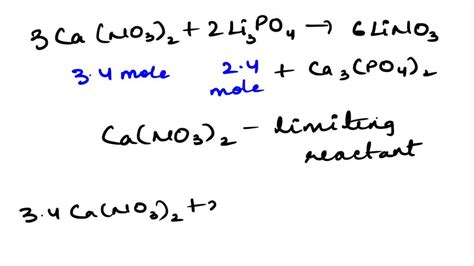 3Ca(NO3)2 + 2Li3PO4 → 6LiNO3
3.4 mole 2.4 mole + Ca3(PO4)2
Ca(NO3)2 - limiting
reactant
3.4 Ca(NO3)2 +